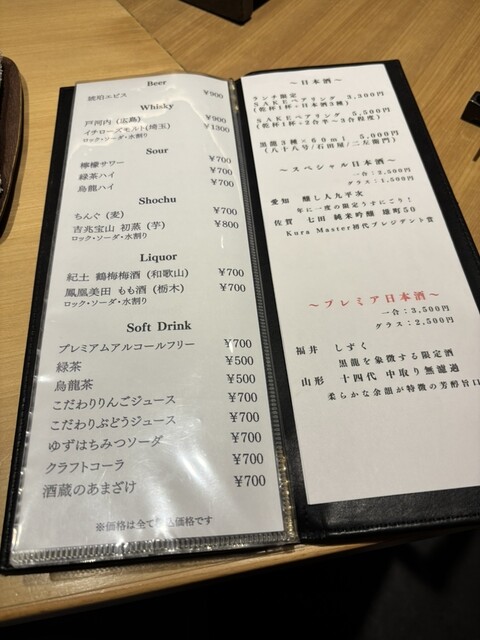 Beer
琥珀エビス ¥900
Whisky
戸河内 (広島) ¥900
イチローズモルト(埼玉) ¥1300
ロック・ソーダ・水割り
Sour
檸檬サワー ¥700
緑茶ハイ ¥700
烏龍ハイ ¥700
Shochu
ちんぐ (麦) ¥700
吉兆宝山 初蒸 (芋) ¥800
ロック・ソーダ・水割り
Liquor
紀土 鶴梅梅酒 (和歌山) ¥700
鳳凰美田 もも酒 (栃木) ¥700
ロック・ソーダ・水割り
Soft Drink
プレミアムアルコールフリー ¥700
緑茶 ¥500
烏龍茶 ¥500
こだわりりんごジュース ¥700
こだわりぶどうジュース ¥700
ゆずはちみつソーダ ¥700
クラフトコーラ ¥700
酒蔵のあまざけ ¥700
※価格は全て税込価格です
～日本酒～
ランチ限定
SAKEペアリング 3,300円
(乾杯1杯+日本酒3種)
SAKEペアリング 5,500円
(乾杯1杯+2合半～3合程度)
黒龍3種×60ml 5,000円
(八十八号/石田屋/二左衛門)
～スペシャル日本酒～
一合：2,500円
グラス：1,500円
愛知 醸し人九平次
年に一度の限定うすにごり！
佐賀 七田 純米吟醸 雄町50
Kura Master初代プレジデント賞
～プレミア日本酒～
一合：3,500円
グラス：2,500円
福井 しずく
黒龍を象徴する限定酒
山形 十四代 中取り無濾過
柔らかな余韻が特徴の芳醇旨口